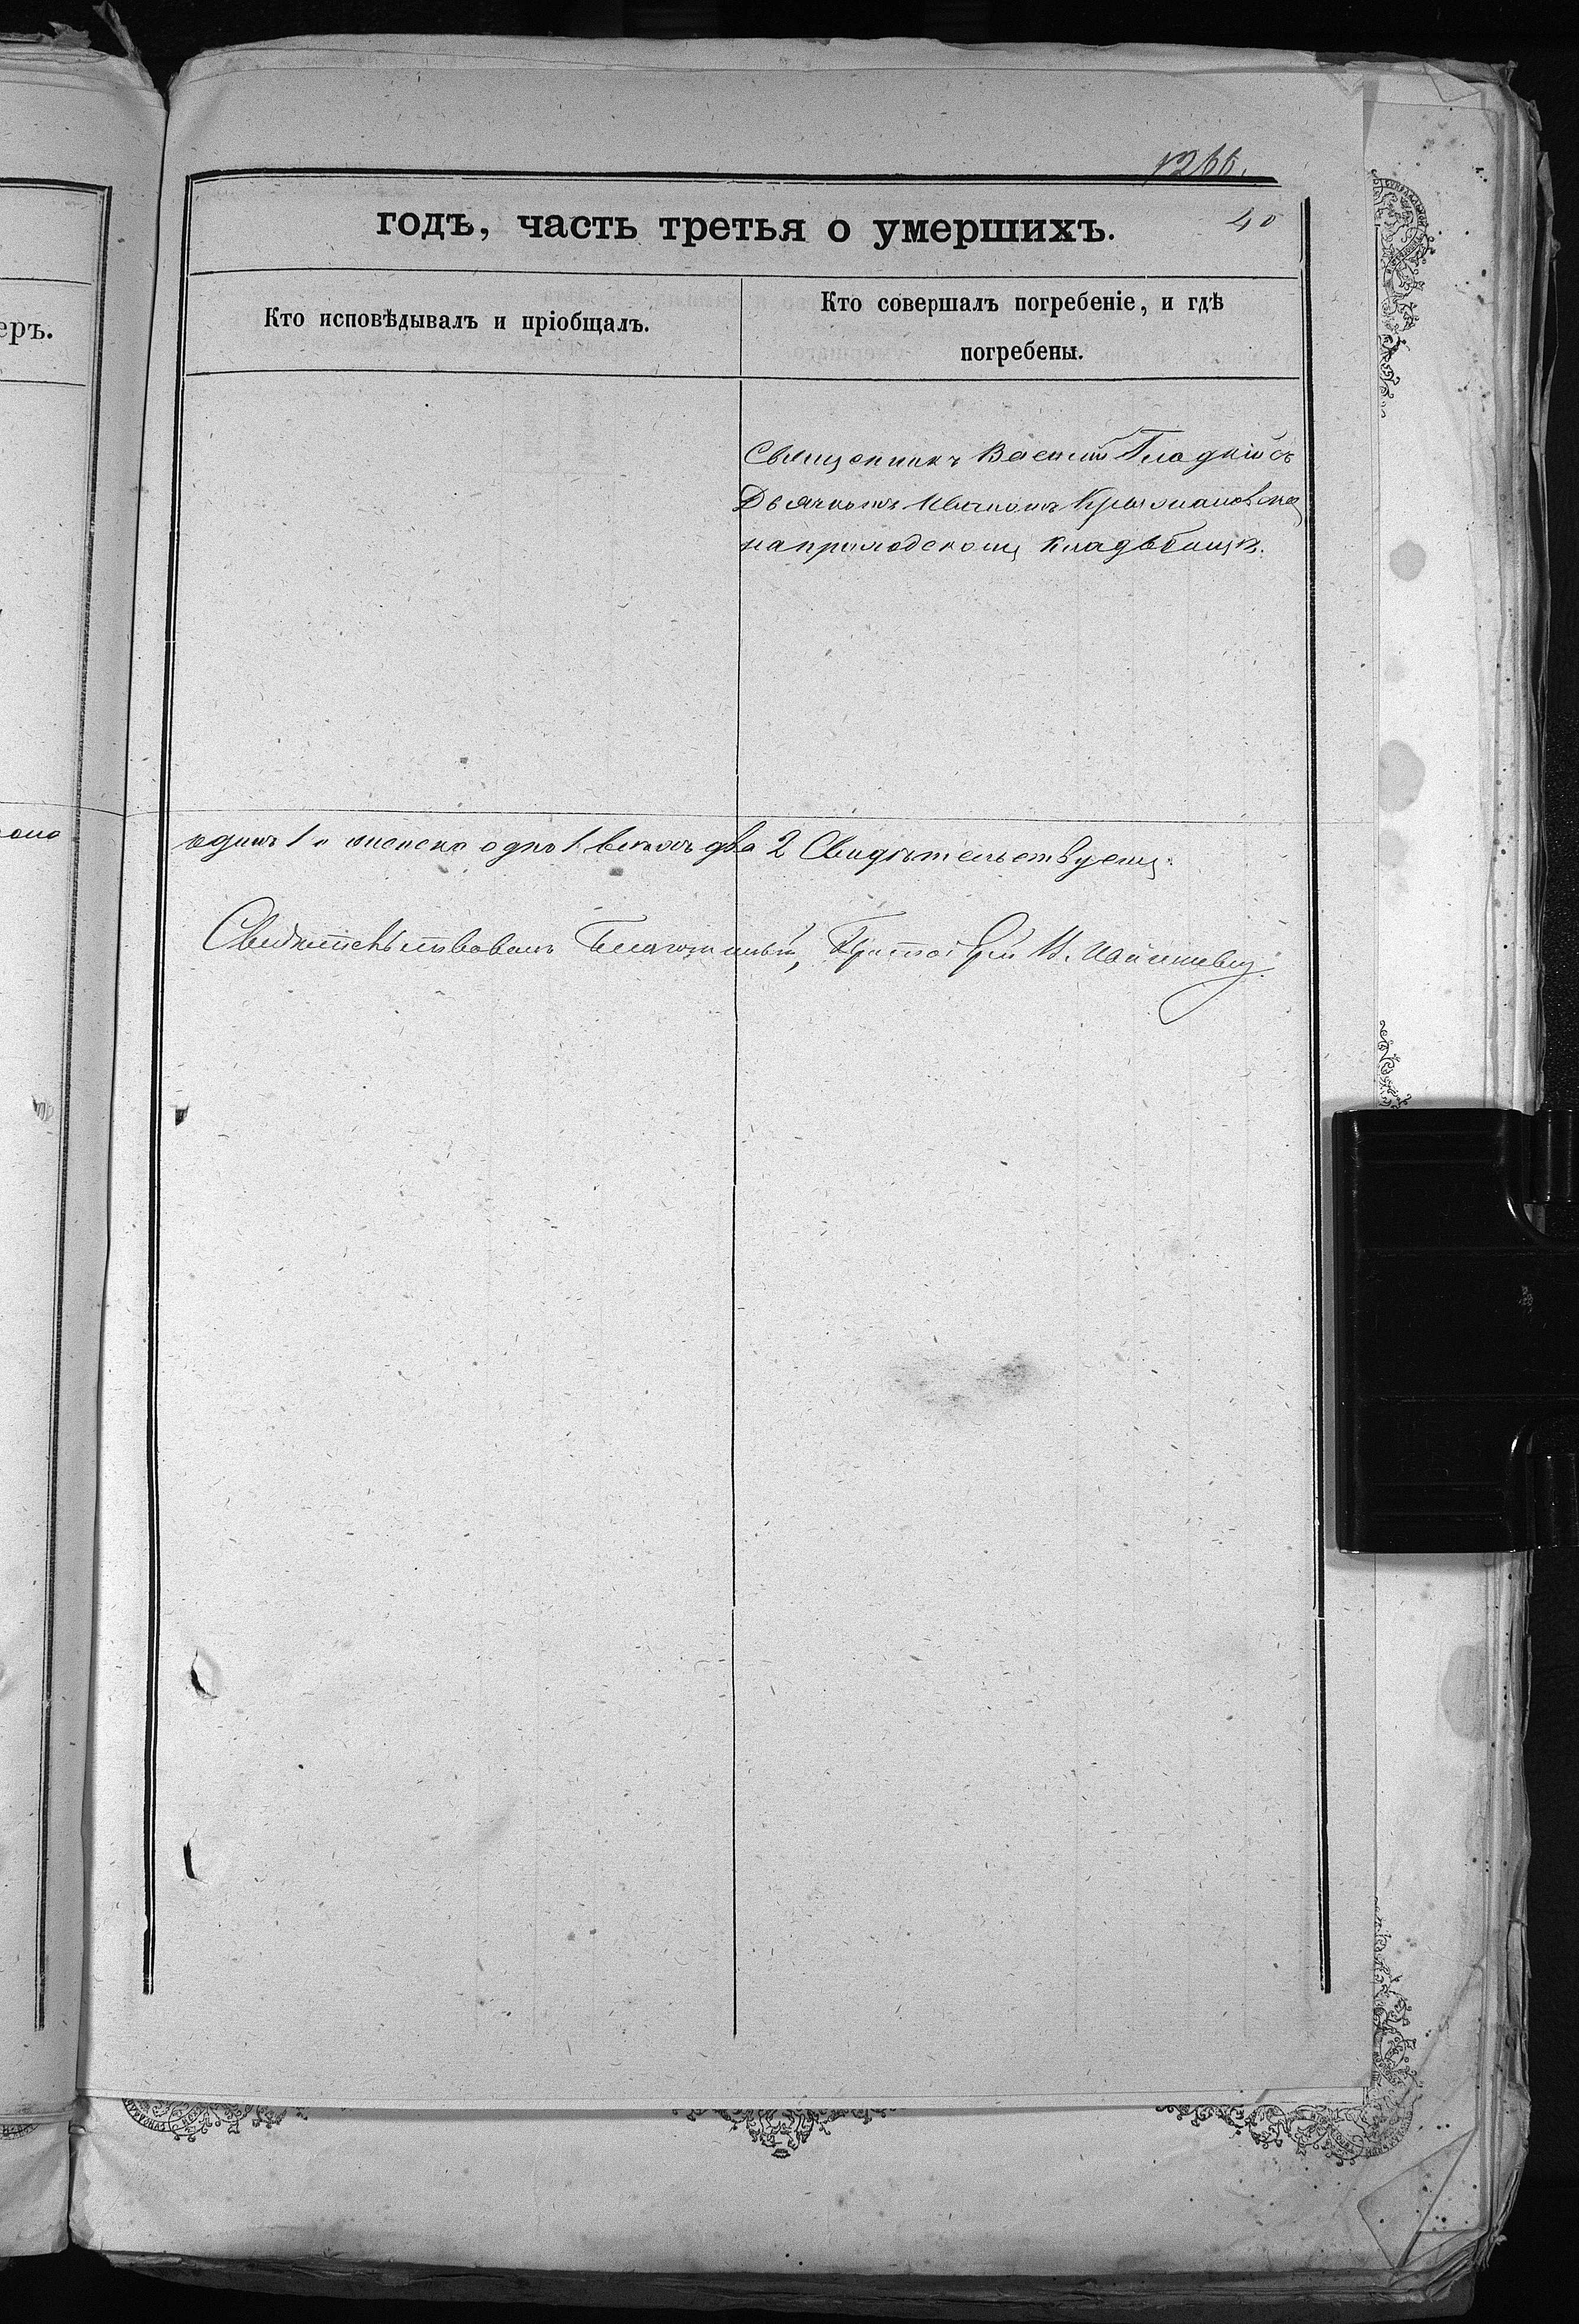 1266.
годъ, часть третья о умершихъ.
40
еръ.
Кто исповѣдывалъ и пріобщалъ.
Кто совершалъ погребеніе, и гдѣ
погребены.
Священникъ Василій Гладкій съ
Дьячкомъ Крыжановск
на приходскомъ кладбищѣ.
одинъ 1 и женска одно 1 всѣхъ два 2 Свидѣтельствуемъ.
Свидѣтельствовалъ Благочинный, Протоіерей